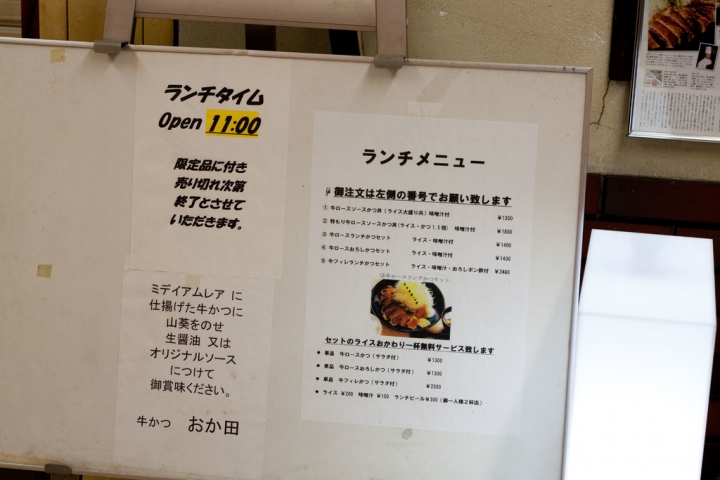 ランチタイム
Open 11:00
限定品に付き
売り切れ次第
終了とさせて
いただきます。
ミデイアムレア に
仕揚げた牛かつに
山葵をのせ
生醤油 又は
オリジナルソース
につけて
御賞味ください。
牛かつ おか田
ランチメニュー
御注文は左側の番号でお願い致します
① 牛ロースソースかつ丼（ライス大盛り丼）味噌汁付 ¥1300
② 特もり牛ロースソースかつ丼（ライス・かつ1.5倍） 味噌汁付 ¥1800
③ 牛ロースランチかつセット ライス・味噌汁付 ¥1400
④ 牛ロースおろしかつセット ライス・味噌汁付 ¥1400
⑤ 牛フィレランチかつセット ライス・味噌汁・おろしポン酢付 ¥2400
③牛ロースランチかつセット
セットのライスおかわり一杯無料サービス致します
● 単品 牛ロースかつ（サラダ付） ¥1300
● 単品 牛ロースおろしかつ（サラダ付） ¥1300
● 単品 牛フィレかつ（サラダ付） ¥2300
● ライス ¥200 味噌汁 ¥150 ランチビール¥300（御一人様2杯迄）